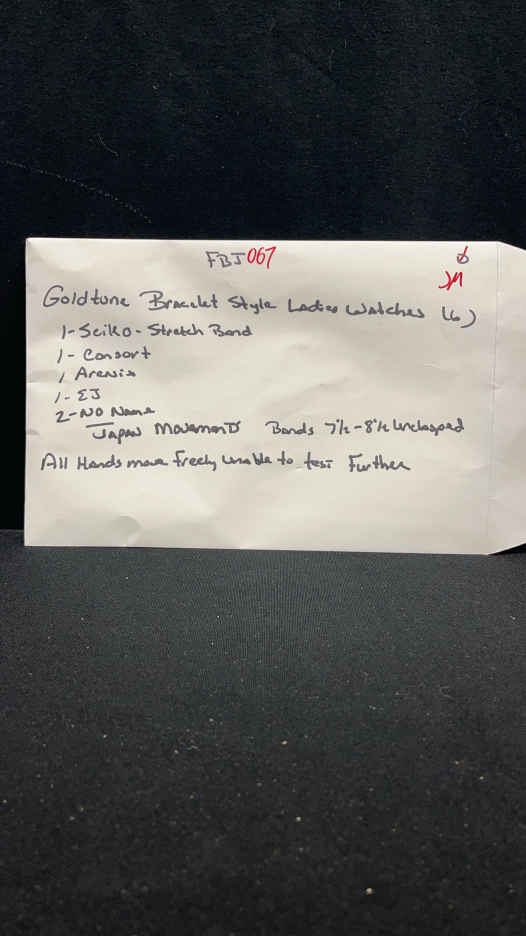 FBJ067
Goldtone Bracelet Style Ladies Watches (6)
1-Seiko-Stretch Band
1-Consort
1 Arenix
1-EJ
2-No Name
Japan Movements Bands 7½-8½ Unclasped
All Hands move freely Unable to test Further